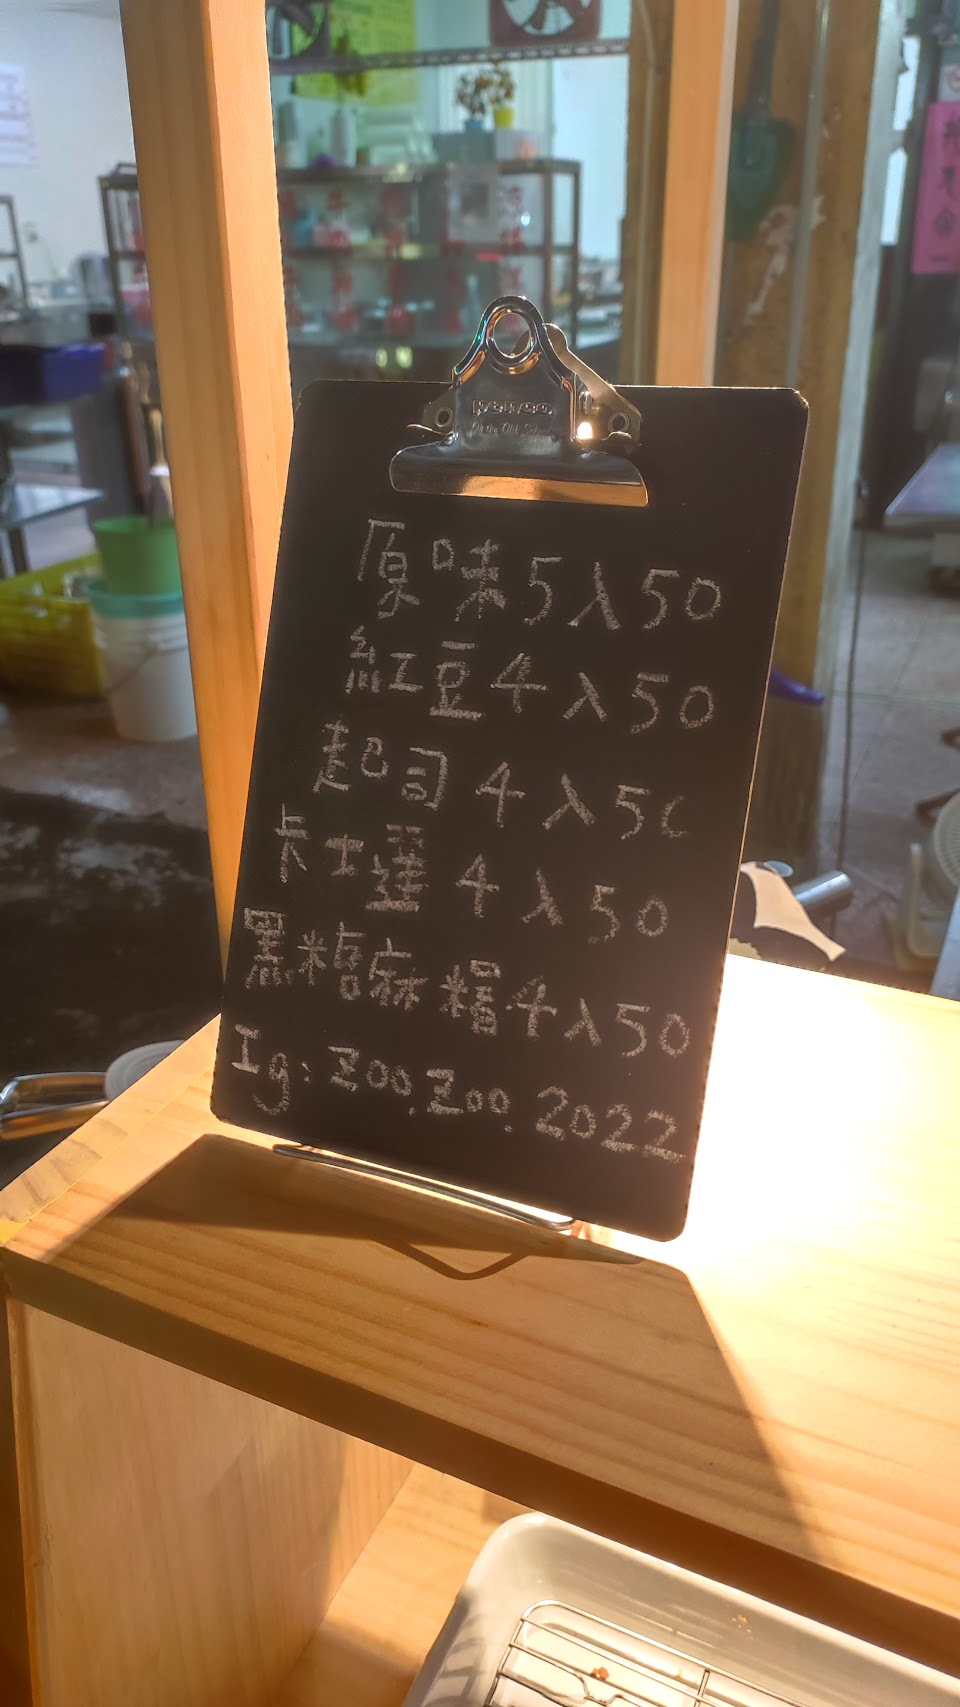 原味5入50
紅豆4入50
起司4入50
卡士達4入50
黑糖麻糬4入50
Ig:zoo.zoo.2022